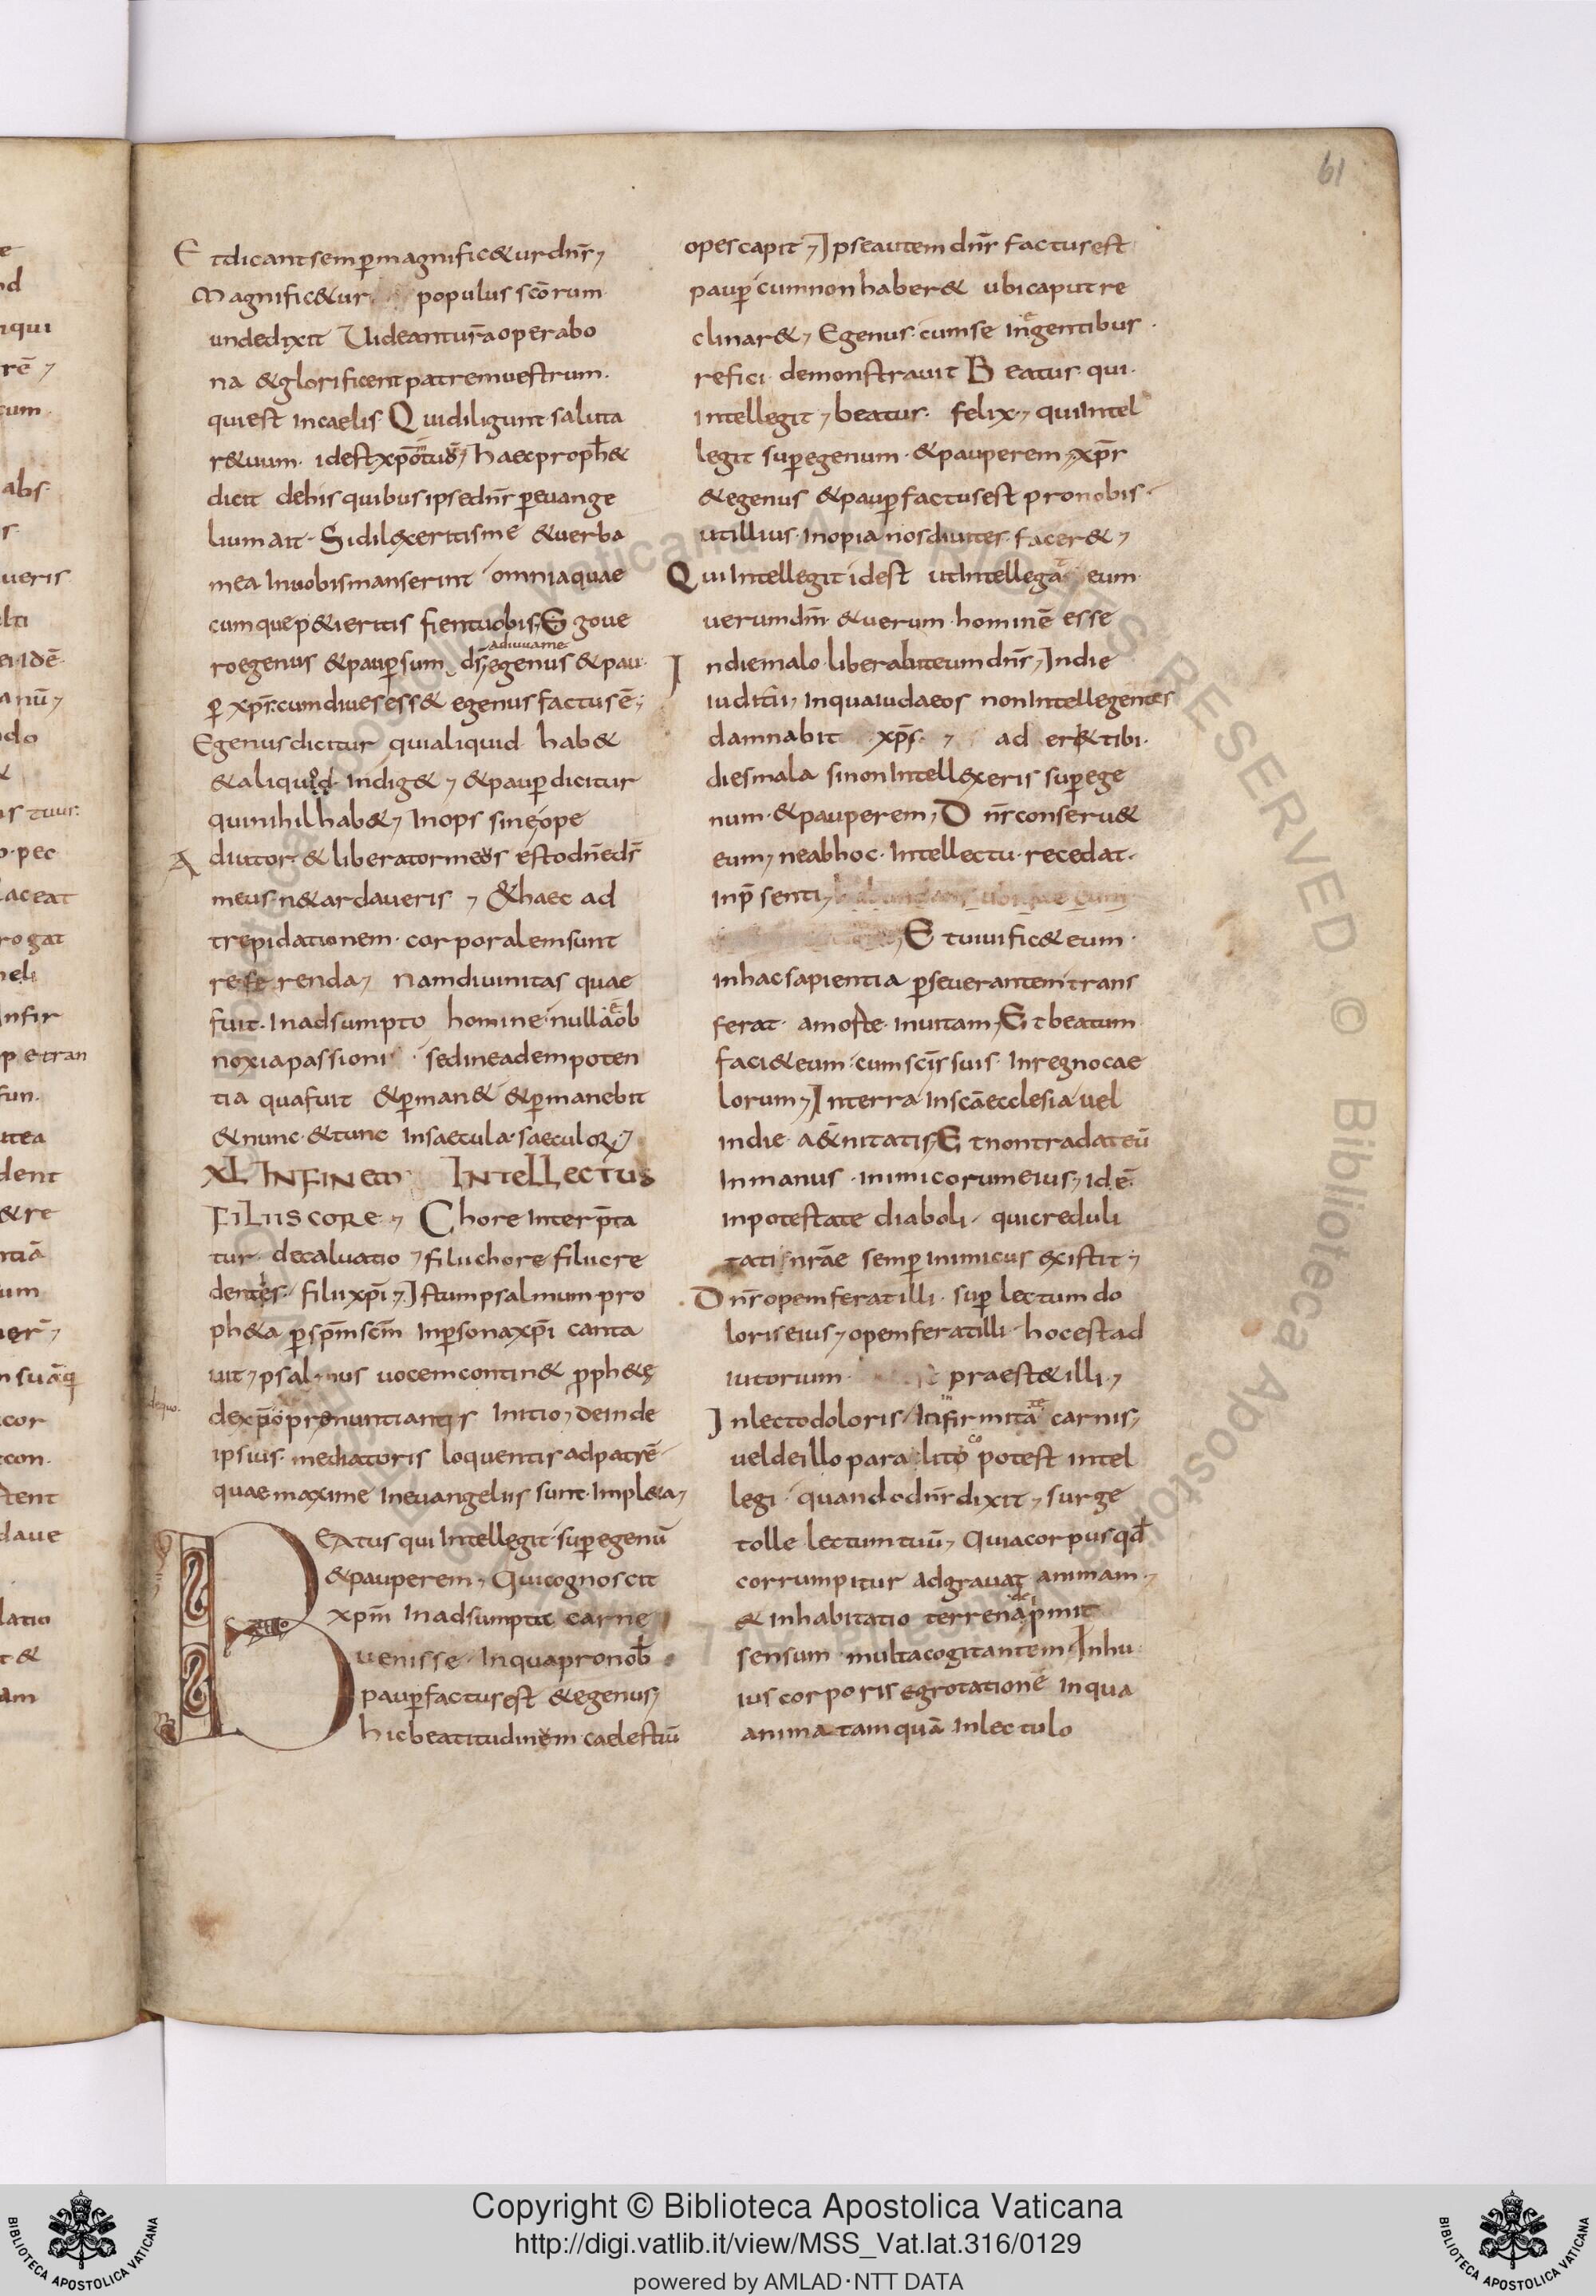 61
Et dicant semper magnific&ur dn̄s,
Magnific&ur populus scōrum
unde dixit Uideant ur̄a opera bo
na & glorificent patrem uestrum.
qui est in caelis Qui diligunt saluta
r& uum. id est xpō tuū, haec proph&
dicit de his quibus ipse dn̄s p̱ euange
lium ait. Si dilexeritis me & uerba
mea in uobis manserint omnia quae
cumque p&ieritis fient uobis, Ego ue
ro egenus & paup̱ sum ds̄ adiuua me, egenus & pau
p̱ xp̄s. cum diues ess& egenus factus ē,
Egenus dicitur qui aliquid hab&
& aliquod indig&, & paup̱ dicitur
qui nihil hab&, Inops sine ope
Adiutor & liberator meus esto dn̄e ds̄
meus n& ardaueris, & haec ad
trepidationem corporalem sunt
referenda, Nam diuinitas quae
fuit in adsumpto homine nullā ē ob
noxia passioni sed in eadem poten
tia qua fuit & p̱man& & p̱manebit
& nunc & tunc in saecula saeculoꝝ,
XL IN FINEM INTELLECTUS
FILIIS CORE, Chore interp̄ta
tur decaluatio, filii chore filii cre
dentes filii xp̄i, Istum psalmum pro
ph&a p̱ sp̄m scm̄ in p̱sona xp̄i canta
uit, psalmus uocem contin& p̱ph&ę
de xp̄o prenuntiantis initio, deinde
ipsius mediatoris loquentis ad patrē
quae maxime in euangeliis sunt impl&a,
BEAtus qui intellegit sup̱ egenū
& pauperem, Qui cognoscit
xpm̄ in adsumpta carne
uenisse. In qua pro nob̄
paup̱ factus est & egenus,
hic beatitudinem caelestiū
opes capit, Ipse autem dn̄s factus est
paup̱ cum non haber& ubi caput re
clinar&, Egenus cum se in egentibus
refici demonstrauit Beatus qui
intellegit, beatus. felix, qui intel
legit sup̱ egenum & pauperem, xp̄s
& egenus & paup̱ factus est pro nobis
ut illius inopia nos diuites facer&,
Qui intellegit id est ut intellegat eum
uerum dm̄ & uerum hominē esse
In die malo liberabit eum dn̄s, In die
iudicii, in qua iudaeos non intellegentes
damnabit xp̄s, ad er& tibi
dies mala si non intellexeris sup̱ ege
num & pauperem, Dn̄s conseru&
eum, ne ab hoc intellectu recedat.
in p̄senti,
Et uiuific& eum
in hac sapientia p̱seuerantem trans
ferat a morte in uitam, Et beatum
faci& eum cum sc̄is suis in regno cae
lorum, In terra in scā ecclesia uel
in die a&n̄itatis, Et non tradat eū
in manus inimicorum eius, id ē
in potestate diaboli qui creduli
tati nrāe semp̱ inimicus existit,
Dn̄s opem ferat illi sup̱ lectum do
loris eius, opem ferat illi hoc est ad
iutorium praest& illi,
In lecto doloris, in infirmitate carnis,
uel de illo paralitico potest intel
legi quando dn̄s dixit, surge
tolle lectum tuū, Quia corpus qd̄
corrumpitur adgrauat animam,
& inhabitatio terrena dep̄mit
sensum multa cogitantem. In hu
ius corporis egrotatione in qua
anima tamquā in lectulo
Copyright © Biblioteca Apostolica Vaticana
http://digi.vatlib.it/view/MSS_Vat.lat.316/0129
powered by AMLAD·NTT DATA